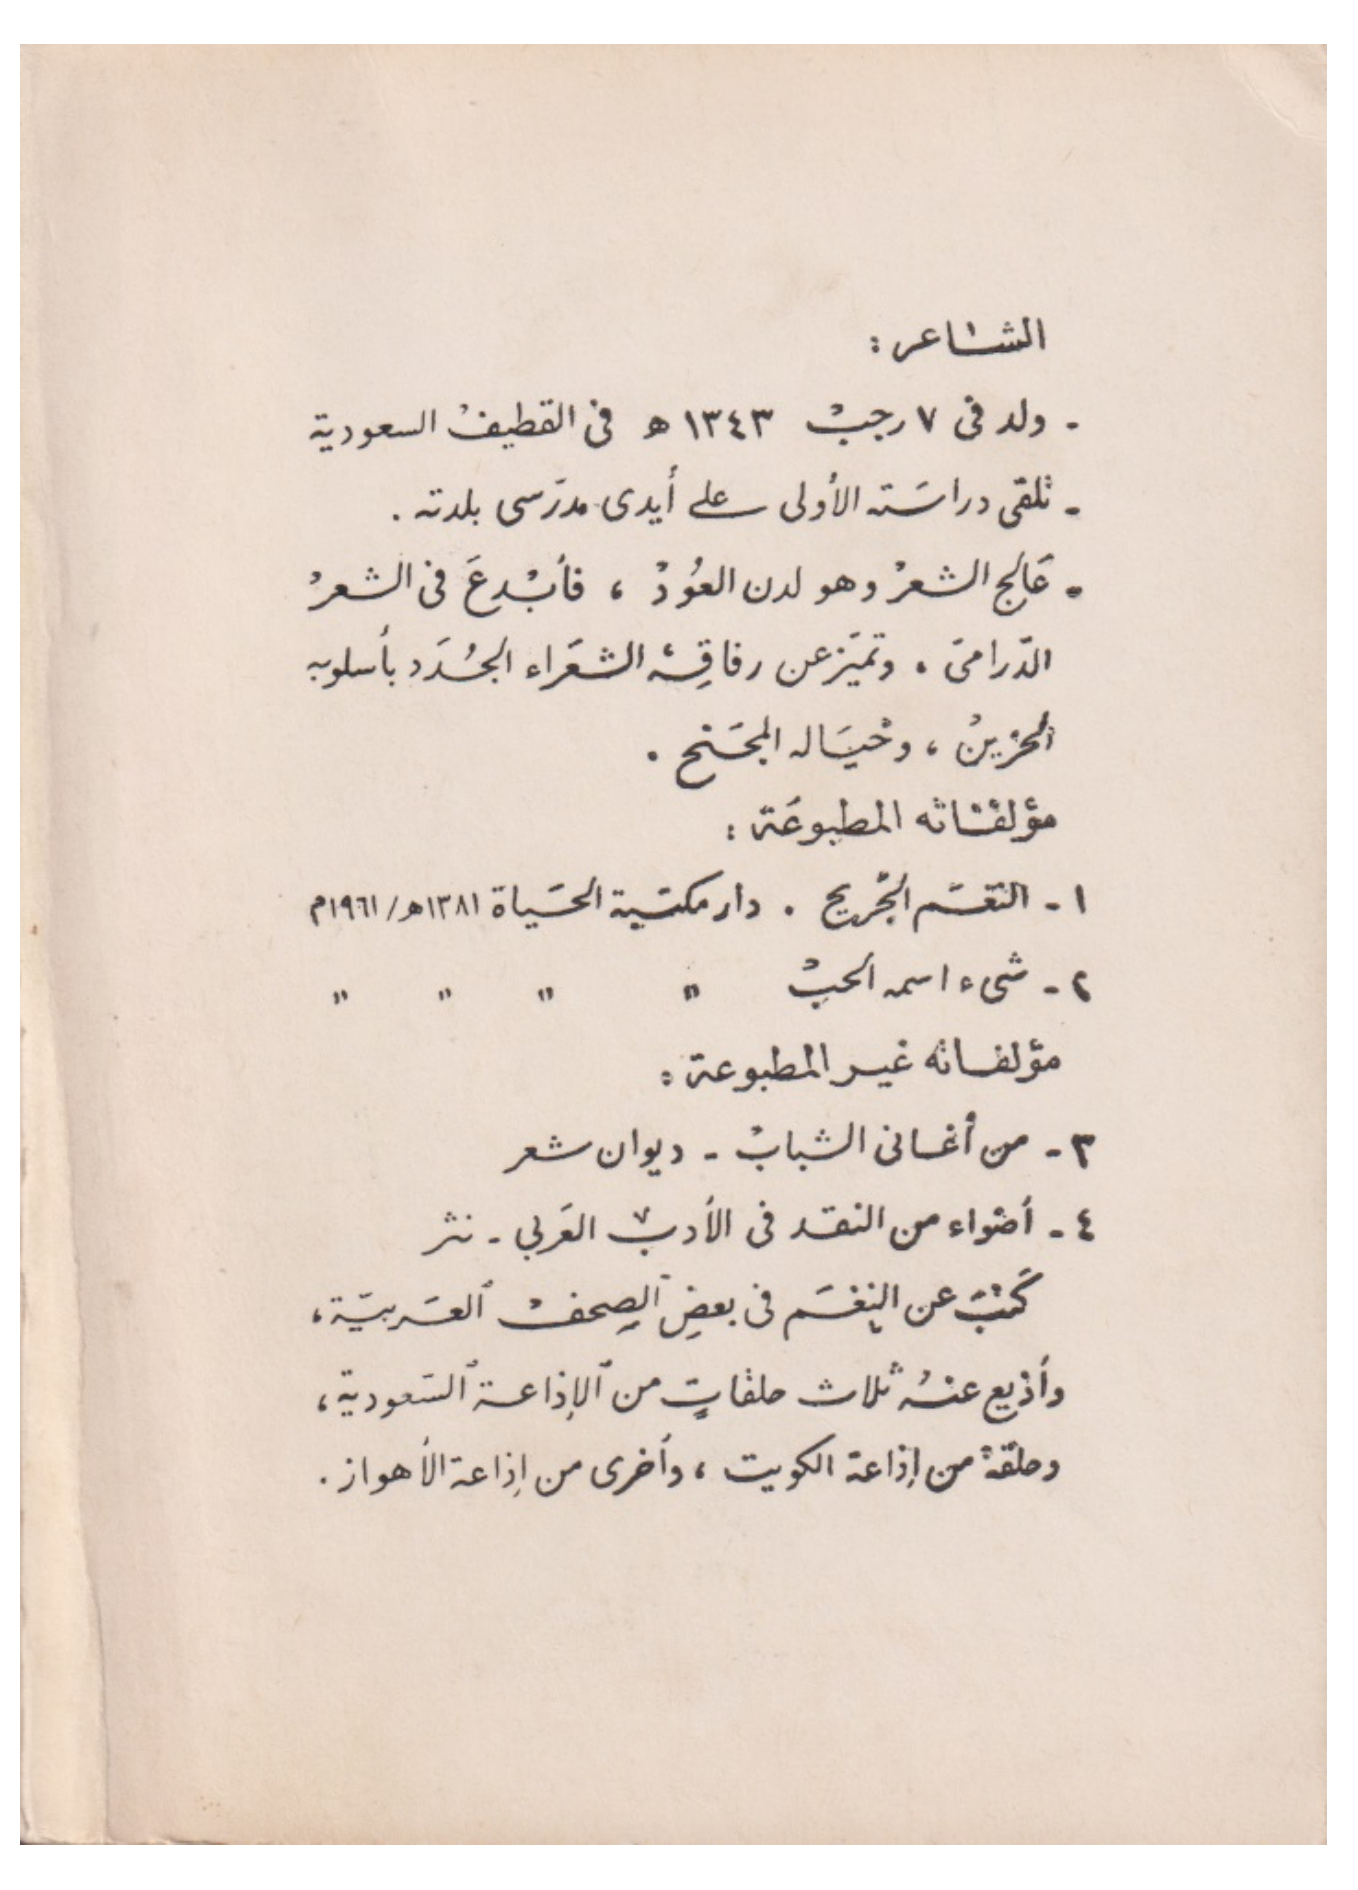 الشاعر :
- ولد في ٧ رجب ١٣٤٣ ه في القطيف السعودية
- تلقى دراسَته الأولى على أيدي مدرَسي بلدته .
- عَالج الشعرْ وهو لدن العُودْ ، فأبْدعَ في الشعرْ
الدّرامي . وتميَز عن رفاقِهْ الشعَراء الجُدَد بأسلوبه
الحزينْ ، وخيَاله المجَنح .
مؤلفاته المطبوعَة :
١ - النغَم الجْريح . دار مكتبة الحَياة ١٣٨١ھ/١٩٦١م
٢ - شيء اسمه الحبْ " " " "
مؤلفاته غير المطبوعة :
٣ - من أغاني الشبابْ - ديوان شعر
٤ - أضواء من النقد في الأدب العَربي - نثر
كَتبَ عن النغَم في بعضِ الصحفْ العَربيّة ،
وأذيع عنهُ ثلاث حلقاتٍ من الإذاعة السَعودية ،
وحلقة من إذاعة الكويت ، وأخرى من إذاعة الأهواز .